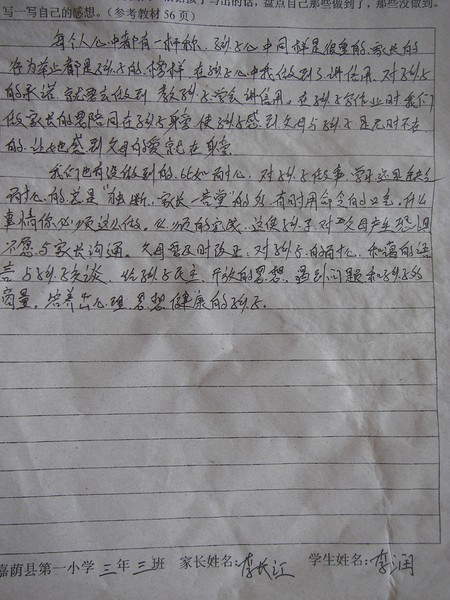 写一写自己的感想。（参考教材56页）
每个人心中都有一杆称，孩子心中同样是很重的，家长的
行为举止都是孩子的榜样，在孩子心中我做到了讲信用，对孩子
的承诺就要去做到，教孩子学会讲信用。在孩子写作业时我们
做家长的要陪同在孩子身旁，使孩子感到父母与孩子是无时不在
的，让他感到父母的爱就在身旁。
我们也有没做到的，比如耐心，对孩子做事、学习还是缺乏
耐心的，总是“独断，家长一言堂”的
有时用命令的口气，什么
事情你必须这么做，必须的完成，这使孩子对父母产生恐惧
不愿与家长沟通。父母要及时改正，对孩子的耐心，和蔼的语
言与孩子交谈，给孩子民主、开放的思想，遇到问题和孩子多
商量，培养出心理、思想健康的孩子。
嘉荫县第一小学 三年三班 家长姓名：李长江 学生姓名：李润